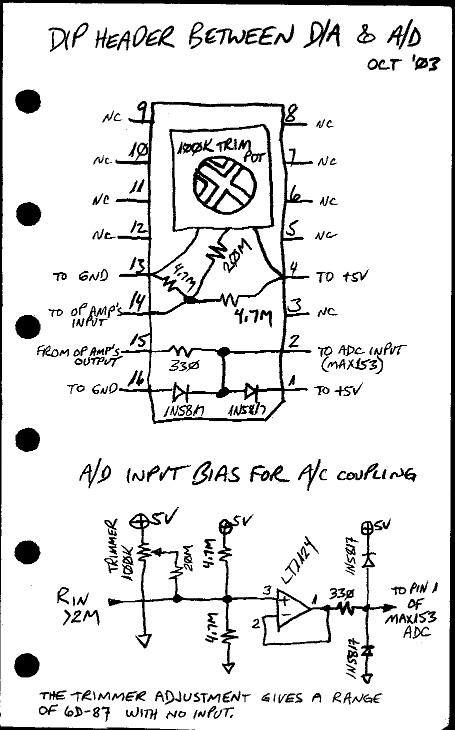 DIP HEADER BETWEEN D/A & A/D
OCT '03
9 NC
8 NC
100K TRIM POT
10 NC
7 NC
11 NC
6 NC
12 NC
5 NC
13 TO GND
4.7M
20M
4 TO +5V
14 TO OP AMP'S INPUT
4.7M
3 NC
15 FROM OP AMP'S OUTPUT
330
2 TO ADC INPUT (MAX153)
16 TO GND
1N5817
1N5817
1 TO +5V
A/D INPUT BIAS FOR A/C COUPLING
5V
5V
5V
TRIMMER
100K
20M
4.7M
LT1124
1N5817
RIN >2M
3
1
2
330
TO PIN 1 OF MAX153 ADC
4.7M
1N5817
THE TRIMMER ADJUSTMENT GIVES A RANGE
OF 6D-87 WITH NO INPUT.